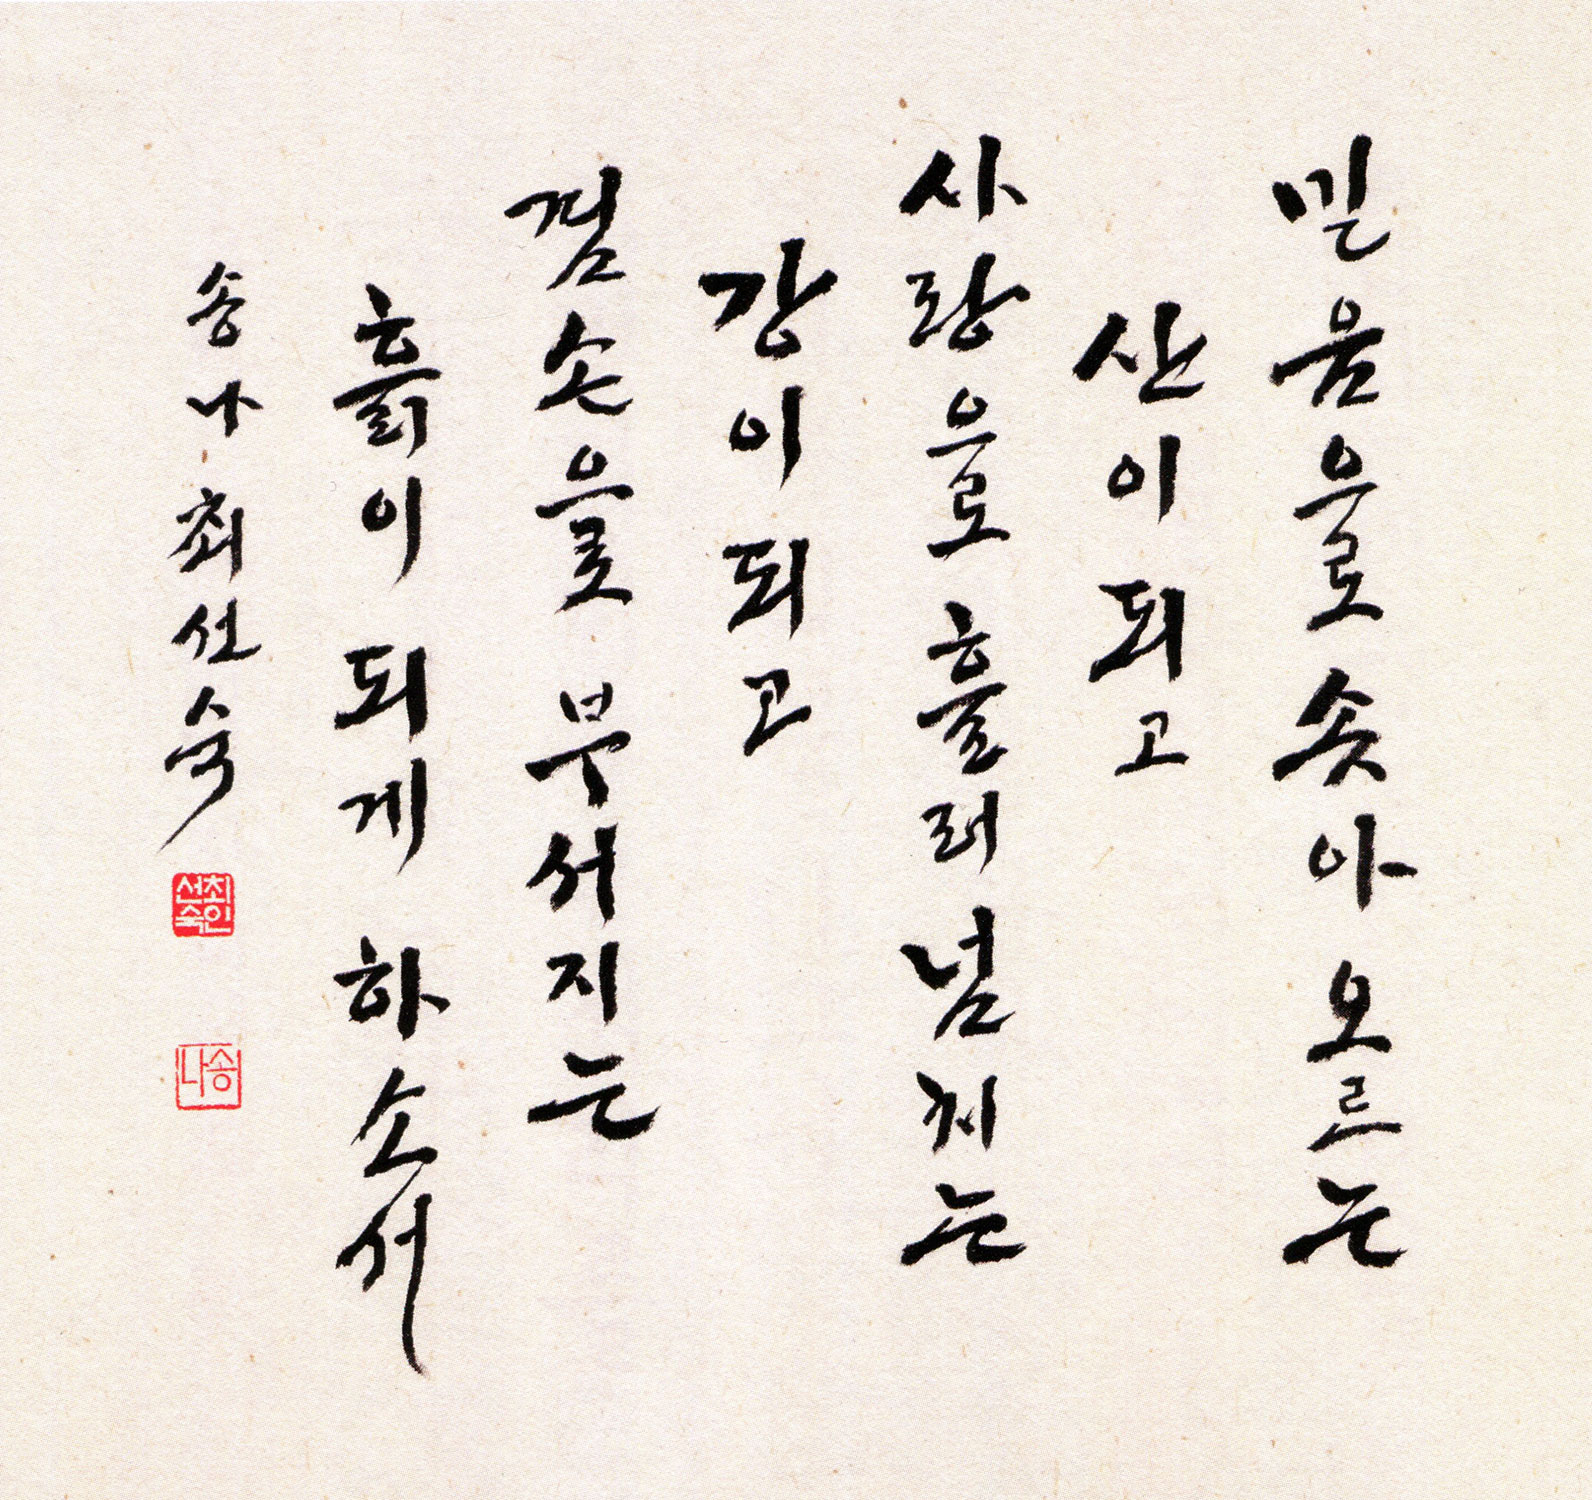 믿음으로 솟아오르는
산이 되고
사랑으로 흘러넘치는
강이 되고
겸손으로 부서지는
흙이 되게 하소서
송나 최선숙
최선숙인
송나